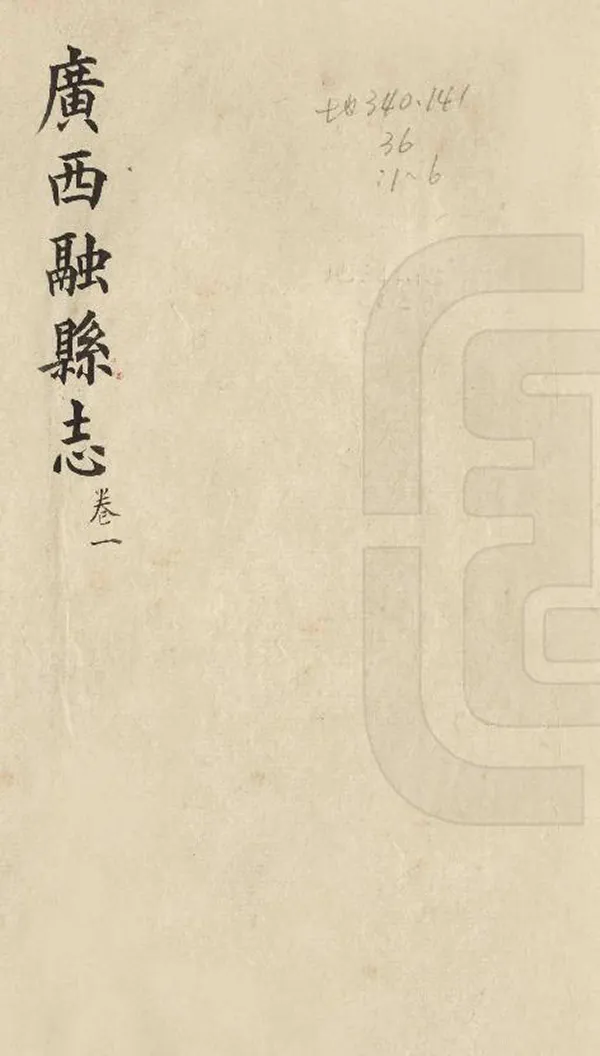 廣西融縣志
卷一
地340.141
36
:1~6